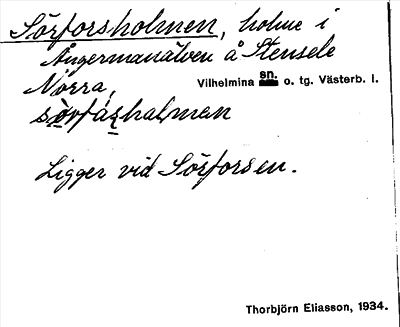 Sörforsholmen, holme i
Ångermanälven å Stensele
Norra, Vilhelmina sn. o. tg. Västerb. l.
sörfåshalman
Ligger vid Sörforsen.
Thorbjörn Eliasson, 1934.